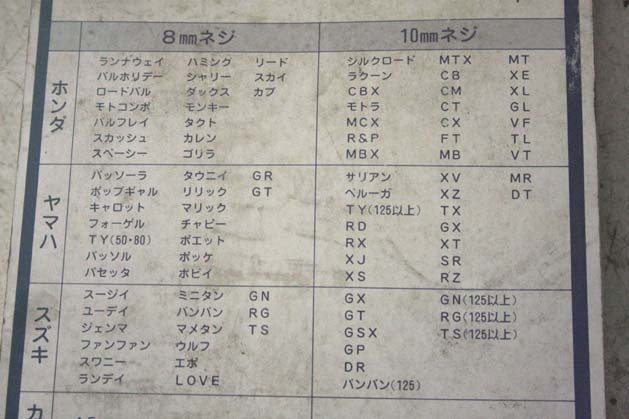 8mmネジ 10mmネジ
ホンダ
ランナウェイ ハミング リード シルクロード MTX MT
パルホリデー シャリー スカイ ラクーン CB XE
ロードパル ダックス カブ CBX CM XL
モトコンポ モンキー モトラ CT GL
パルフレイ タクト MCX CX VF
スカッシュ カレン R&P FT TL
スペーシー ゴリラ MBX MB VT
ヤマハ
パッソーラ タウニイ GR サリアン XV MR
ポップギャル リリック GT ベルーガ XZ DT
キャロット マリック TY(125以上) TX
フォーゲル チャピー RD GX
TY(50・80) ポエット RX XT
パッソル ポッケ XJ SR
パセッタ ボビイ XS RZ
スズキ
スージイ ミニタン GN GX GN(125以上)
ユーデイ バンバン RG GT RG(125以上)
ジェンマ マメタン TS GSX TS(125以上)
ファンファン ウルフ GP
スワニー エポ DR
ランデイ LOVE バンバン(125)
カ